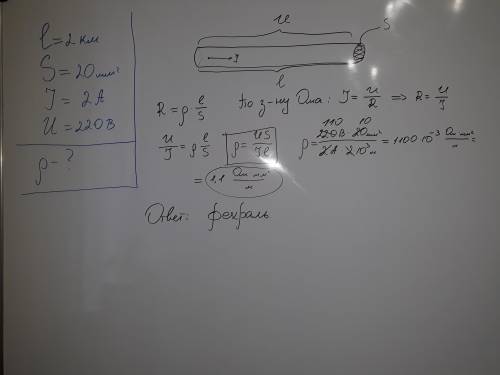 l = 2 км
S = 20 мм²
I = 2 А
U = 220 В
ρ - ?
U
S
I
l
R = ρ l/S
По з-ну Ома: I = U/R => R = U/I
U/I = ρ l/S
ρ = US/Il
ρ = 220 В · 20 мм² / 2 А · 2 10³ м = 1100 · 10⁻³ Ом мм²/м =
110 10
= 1,1 Ом мм²/м
Ответ: фехраль